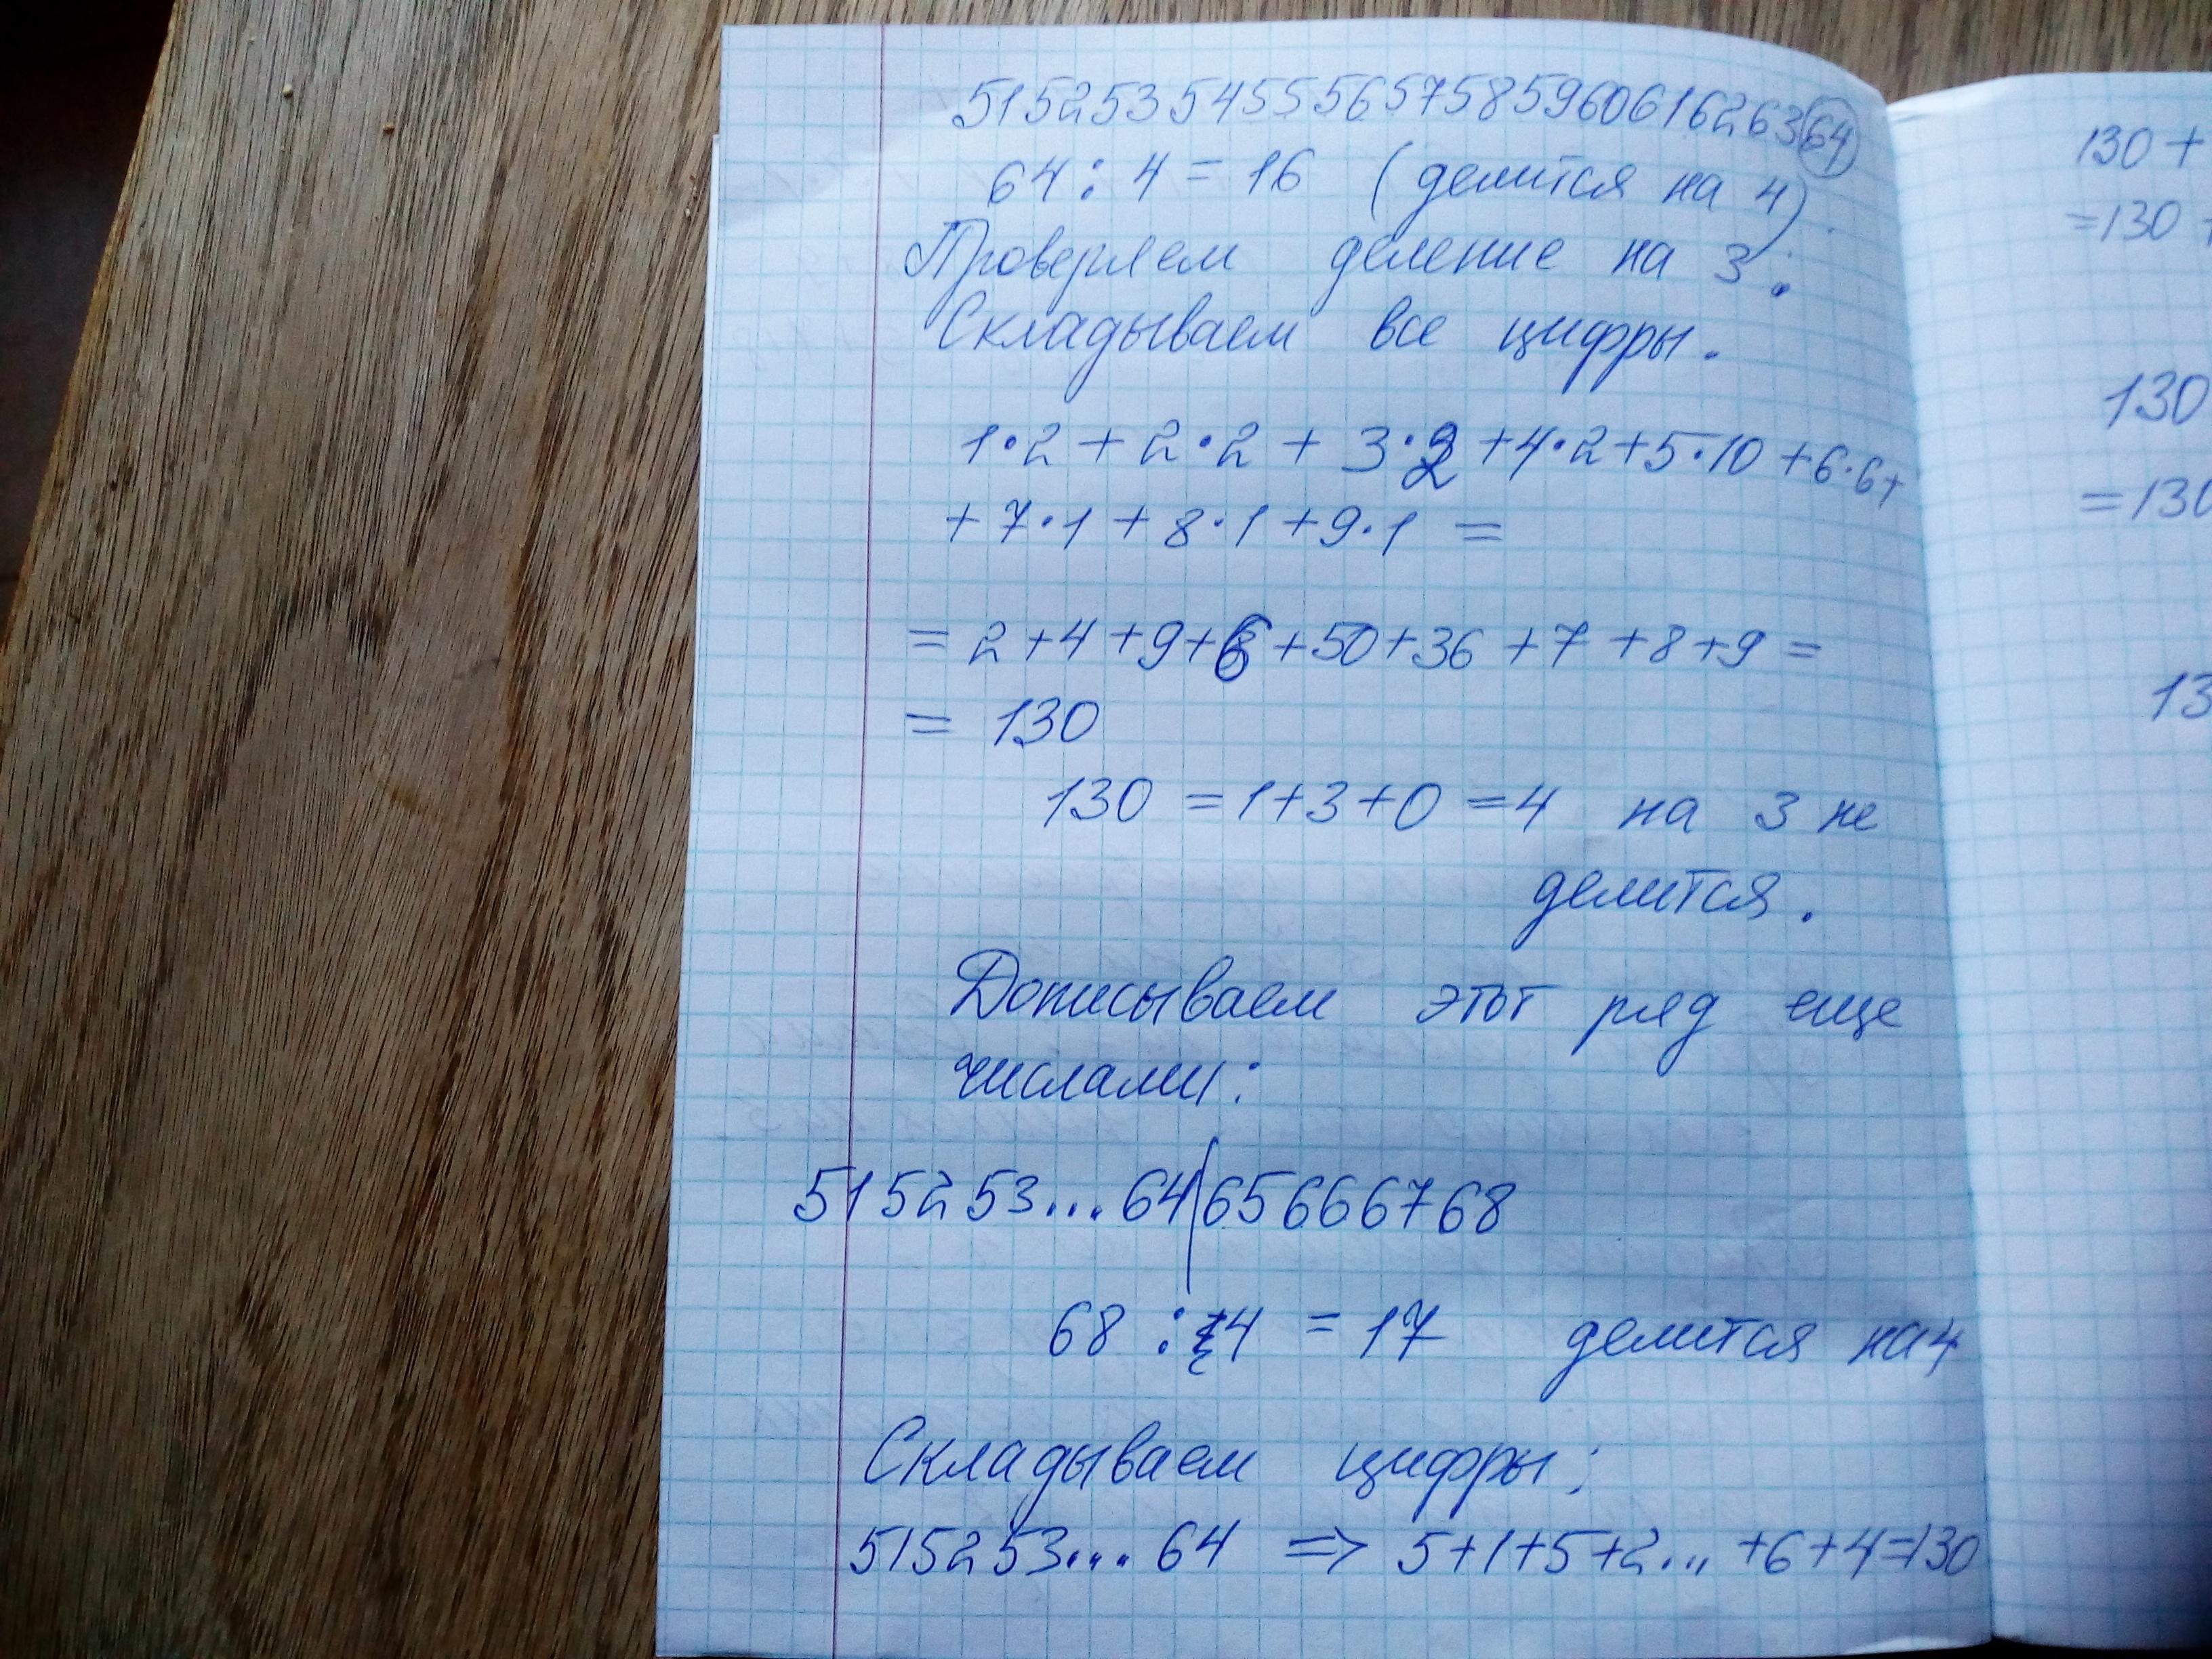 5152535455565758596061626364
64 : 4 = 16 (делится на 4)
Проверяем деление на 3:
Складываем все цифры.
1·2 + 2·2 + 3·2 + 4·2 + 5·10 + 6·6 +
+ 7·1 + 8·1 + 9·1 =
= 2 + 4 + 9 + 6 + 50 + 36 + 7 + 8 + 9 =
= 130
130 = 1+3+0 = 4 на 3 не
делится.
Дописываем этот ряд еще
числами:
515253...64|65666768
68 : 4 = 17 делится на 4
Складываем цифры:
515253...64 => 5+1+5+2... +6+4=130
130 +
=130 +
130
=130
13